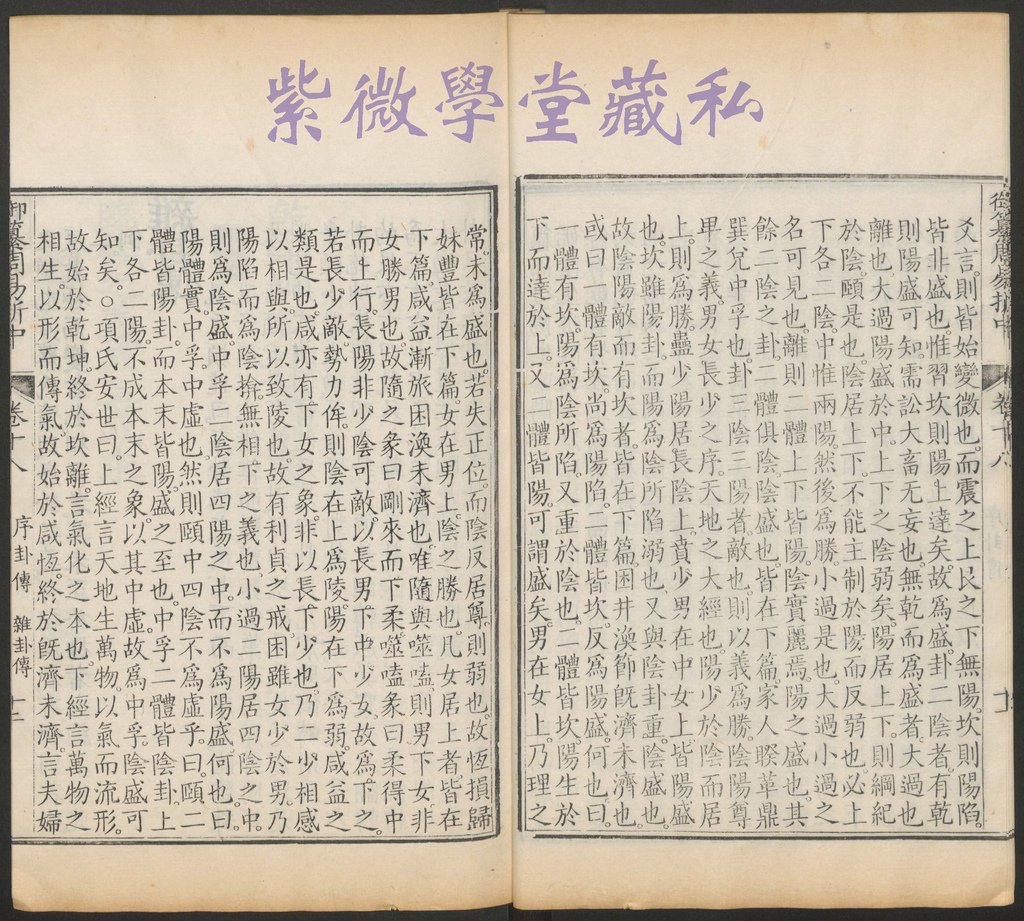 紫微學堂藏私
御纂周易折中
爻言則皆始變微也而震之上艮之下無陽坎則陽陷
皆非盛也惟習坎則陽上達矣故為盛卦二陰者有乾
則陽盛可知需訟大畜无妄也無乾而為盛者大過也
離也大過陽盛於中上下之陰弱矣陽居上下則綱紀
於陰頤是也陰居上下不能主制於陽而反弱也必上
下各二陰中惟兩陽然後為勝小過是也大過小過之
名可見也離則二體上下皆陽陰實麗焉陽之盛也其
餘二陰之卦二體俱陰陰盛也皆在下篇家人睽革鼎
巽兌中孚也卦三陰三陽者敵也則以義為勝陰陽尊
卑之義男女長少之序天地之大經也陽少於陰而居
上則為勝蠱少陽居長陰上賁少男在中女上皆陽盛
也坎雖陽卦而陽為陰所陷溺也又與陰卦重陰盛也
故陰陽敵而有坎者皆在下篇困井渙節既濟未濟也
或曰一體有坎尚為陽陷二體皆坎反為陽盛何也曰
一體有坎陽為陰所陷又重於陰也二體皆坎陽生於
下而達於上又二體皆陽可謂盛矣男在女上乃理之
常未為盛也若失正位而陰反居尊則弱也故恆損歸
妹豐皆在下篇女在男上陰之勝也凡女居上者皆在
下篇咸益漸旅困渙未濟也唯隨與噬嗑則男下女非
女勝男也故隨之彖曰剛來而下柔噬嗑彖曰柔得中
而上行長陽非少陰可敵以長男下中少女故為下之
若長少敵勢力侔則陰在上為陵陽在下為弱咸益之
類是也咸亦有下女之象非以長下少也乃二少相感
以相與所以致陵也故有利貞之戒困雖女少於男乃
陽陷而為陰揜無相下之義也小過二陽居四陰之中
則為陰盛中孚二陰居四陽之中而不為陽盛何也曰
陽體實中孚中虛也然則頤中四陰不為虛乎曰頤二
體皆陽卦而本末皆陽盛之至也中孚二體皆陰上
下各二陽不成本末之象以其中虛故為中孚陰盛可
知矣○項氏安世曰上經言天地生萬物以氣而流形
故始於乾坤終於坎離言氣化之本也下經言萬物之
相生以形而傳氣故始於咸恆終於既濟未濟言夫婦
御纂周易折中 卷十八 序卦傳 雜卦傳 十二